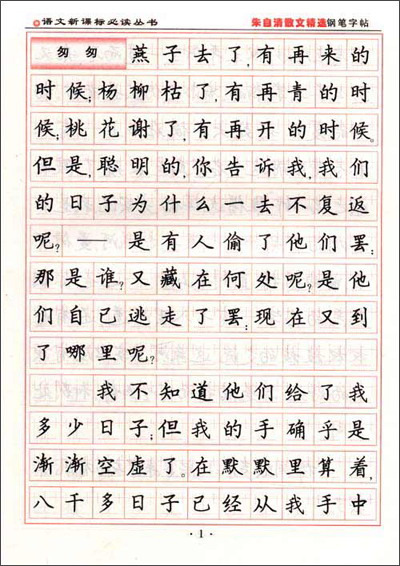 语文新课标必读丛书 朱自清散文精选钢笔字帖
匆匆 燕子去了,有再来的
时候;杨柳枯了,有再青的时
候;桃花谢了,有再开的时候。
但是,聪明的,你告诉我,我们
的日子为什么一去不复返
呢?——是有人偷了他们罢:
那是谁?又藏在何处呢?是他
们自己逃走了罢:现在又到
了哪里呢?
我不知道他们给了我
多少日子;但我的手确乎是
渐渐空虚了。在默默里算着,
八千多日子已经从我手中
·1·